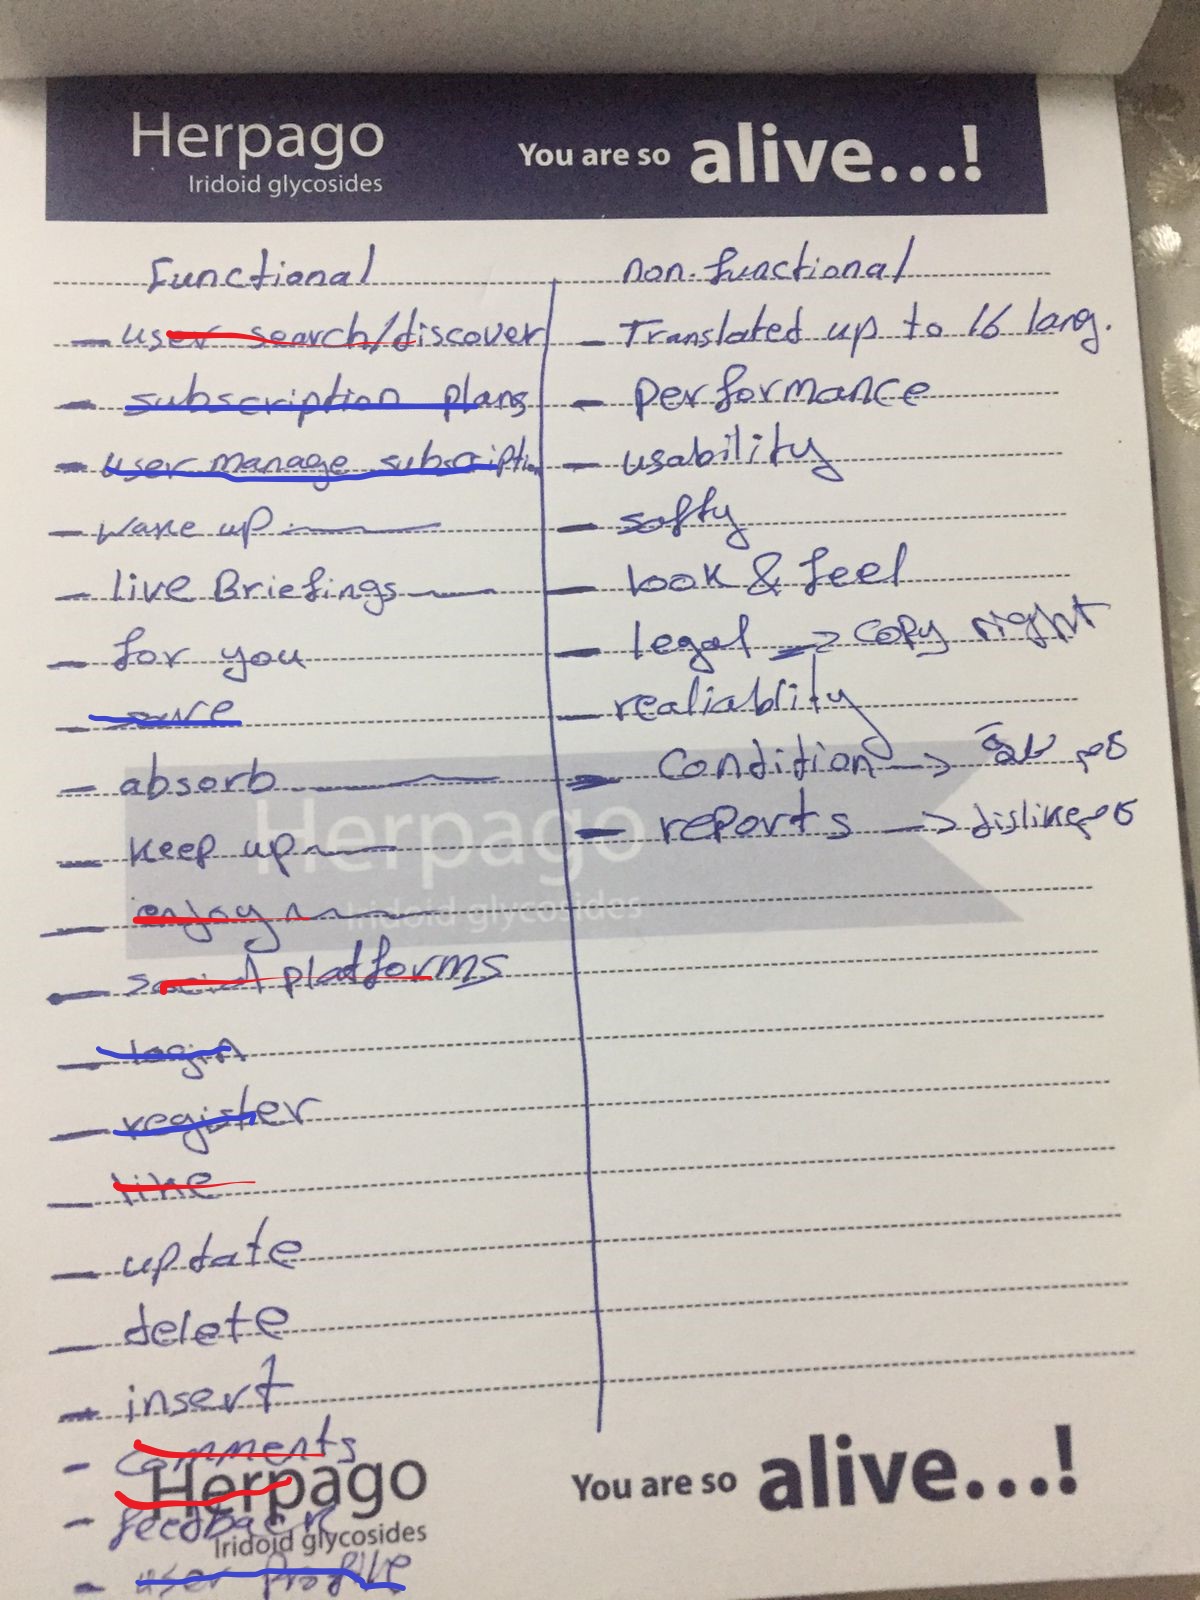 Herpago
Iridoid glycosides
You are so alive...!
Functional
- user search/discover
- subscription plans
- user manage subscripti
- wake up
- live Briefings
- for you
- save
- absorb
- keep up
- enjoy
- social platforms
- login
- register
- like
- update
- delete
- insert
- comments
- feedback
- user profile
non-functional
- Translated up to 16 lang.
- performance
- usability
- safty
- look & feel
- legal -> copy right
- realiablity
- Condition ->
- reports -> dislike
Herpago
Iridoid glycosides
Herpago
Iridoid glycosides
You are so alive...!